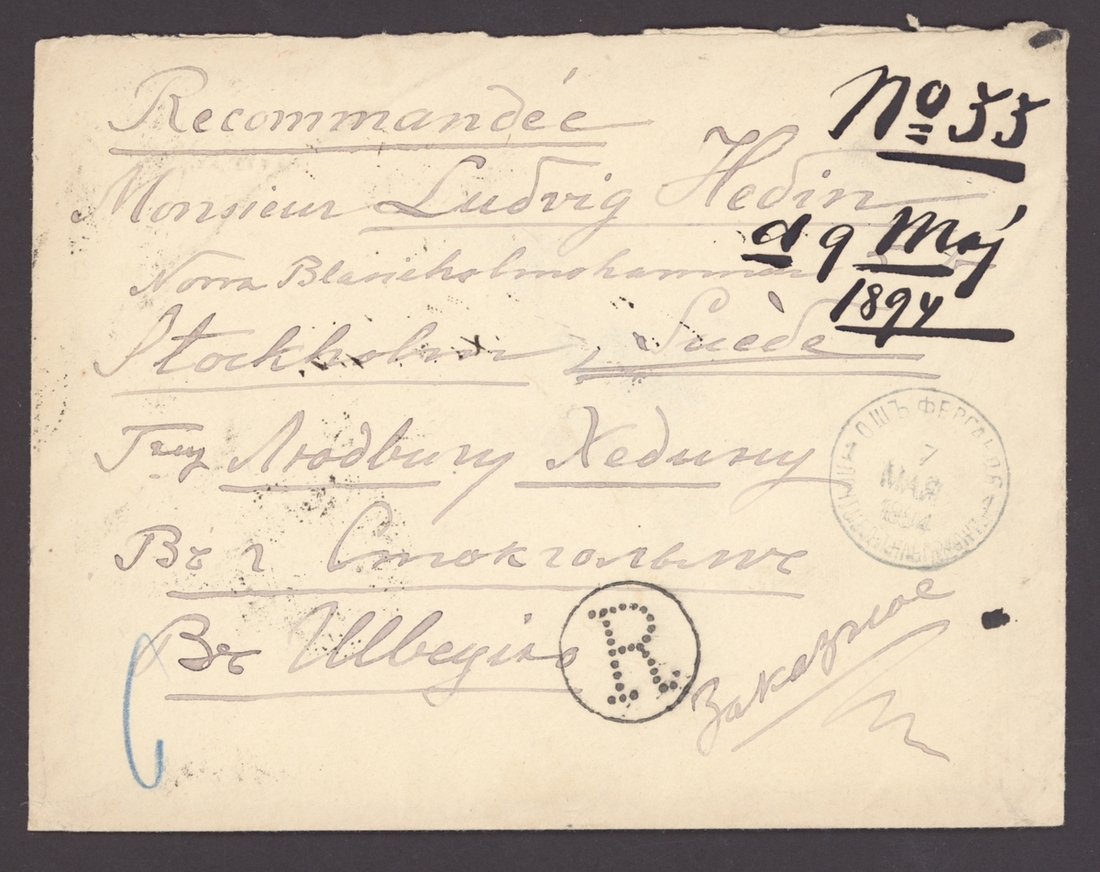 Recommandée
No 33
Monsieur Ludvig Hedin
d 9 Maj
1894
Norra Blasieholmshammen
Stockholm, Suède
Гну Людвигу Хедину
Въ г Стокгольмъ
Въ Швецію
R
Заказное
ОШЪ ФЕРГ. ОБ.
7
МАЯ
1894